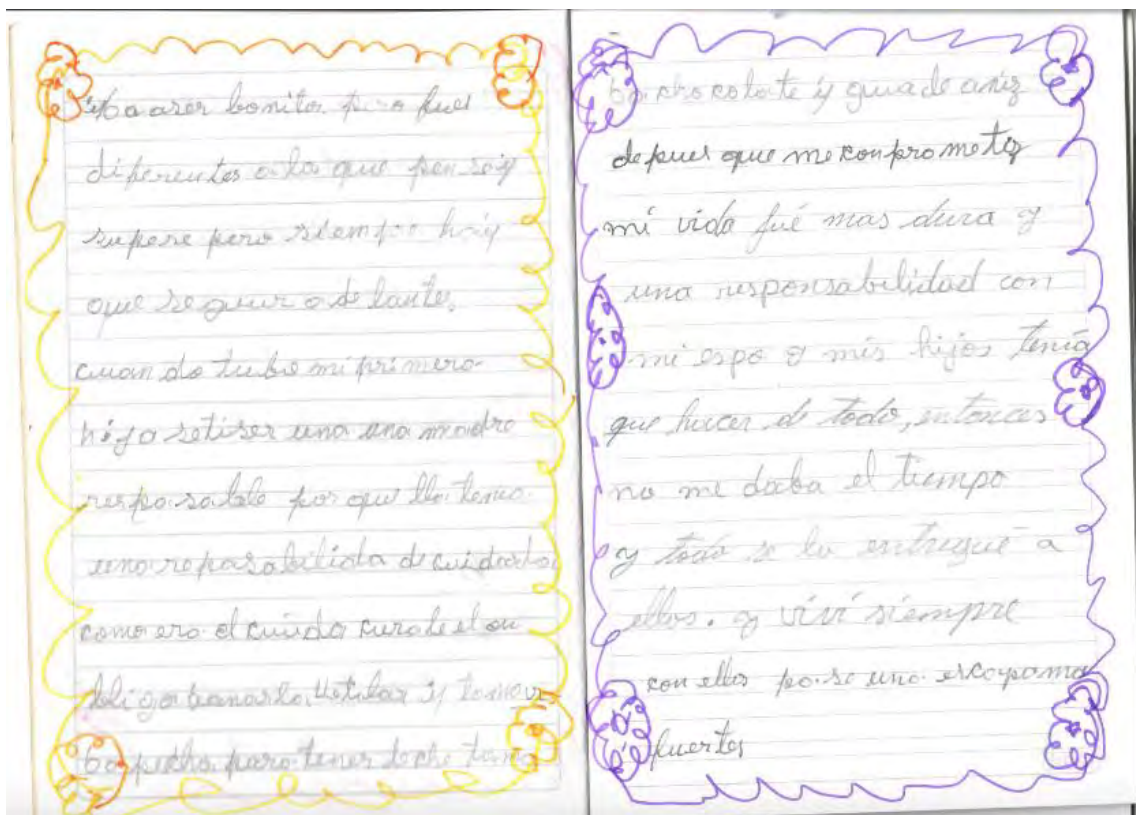 iba aser bonito pero fues
diferentes a la que pensey
supere pero siempre hay
que seguir adelante,
cuando tube mi primero
hijo setiser una una madre
resposable por que lla tenia
una reposabilida de cuidarlo
como era el cuida curale el on
bligo banarlo, y tomar
ba pecho para tener leche toma
ba chocolate y guade aniz
depues que me conprometiy
mi vida fué mas dura y
una responsabilidad con
mi espo y mis hijos tenia
que hacer de todo, entonces
no me daba el tiempo
y todo se lo entregué a
ellos. y viví siempre
con ellos pase una
fuertes